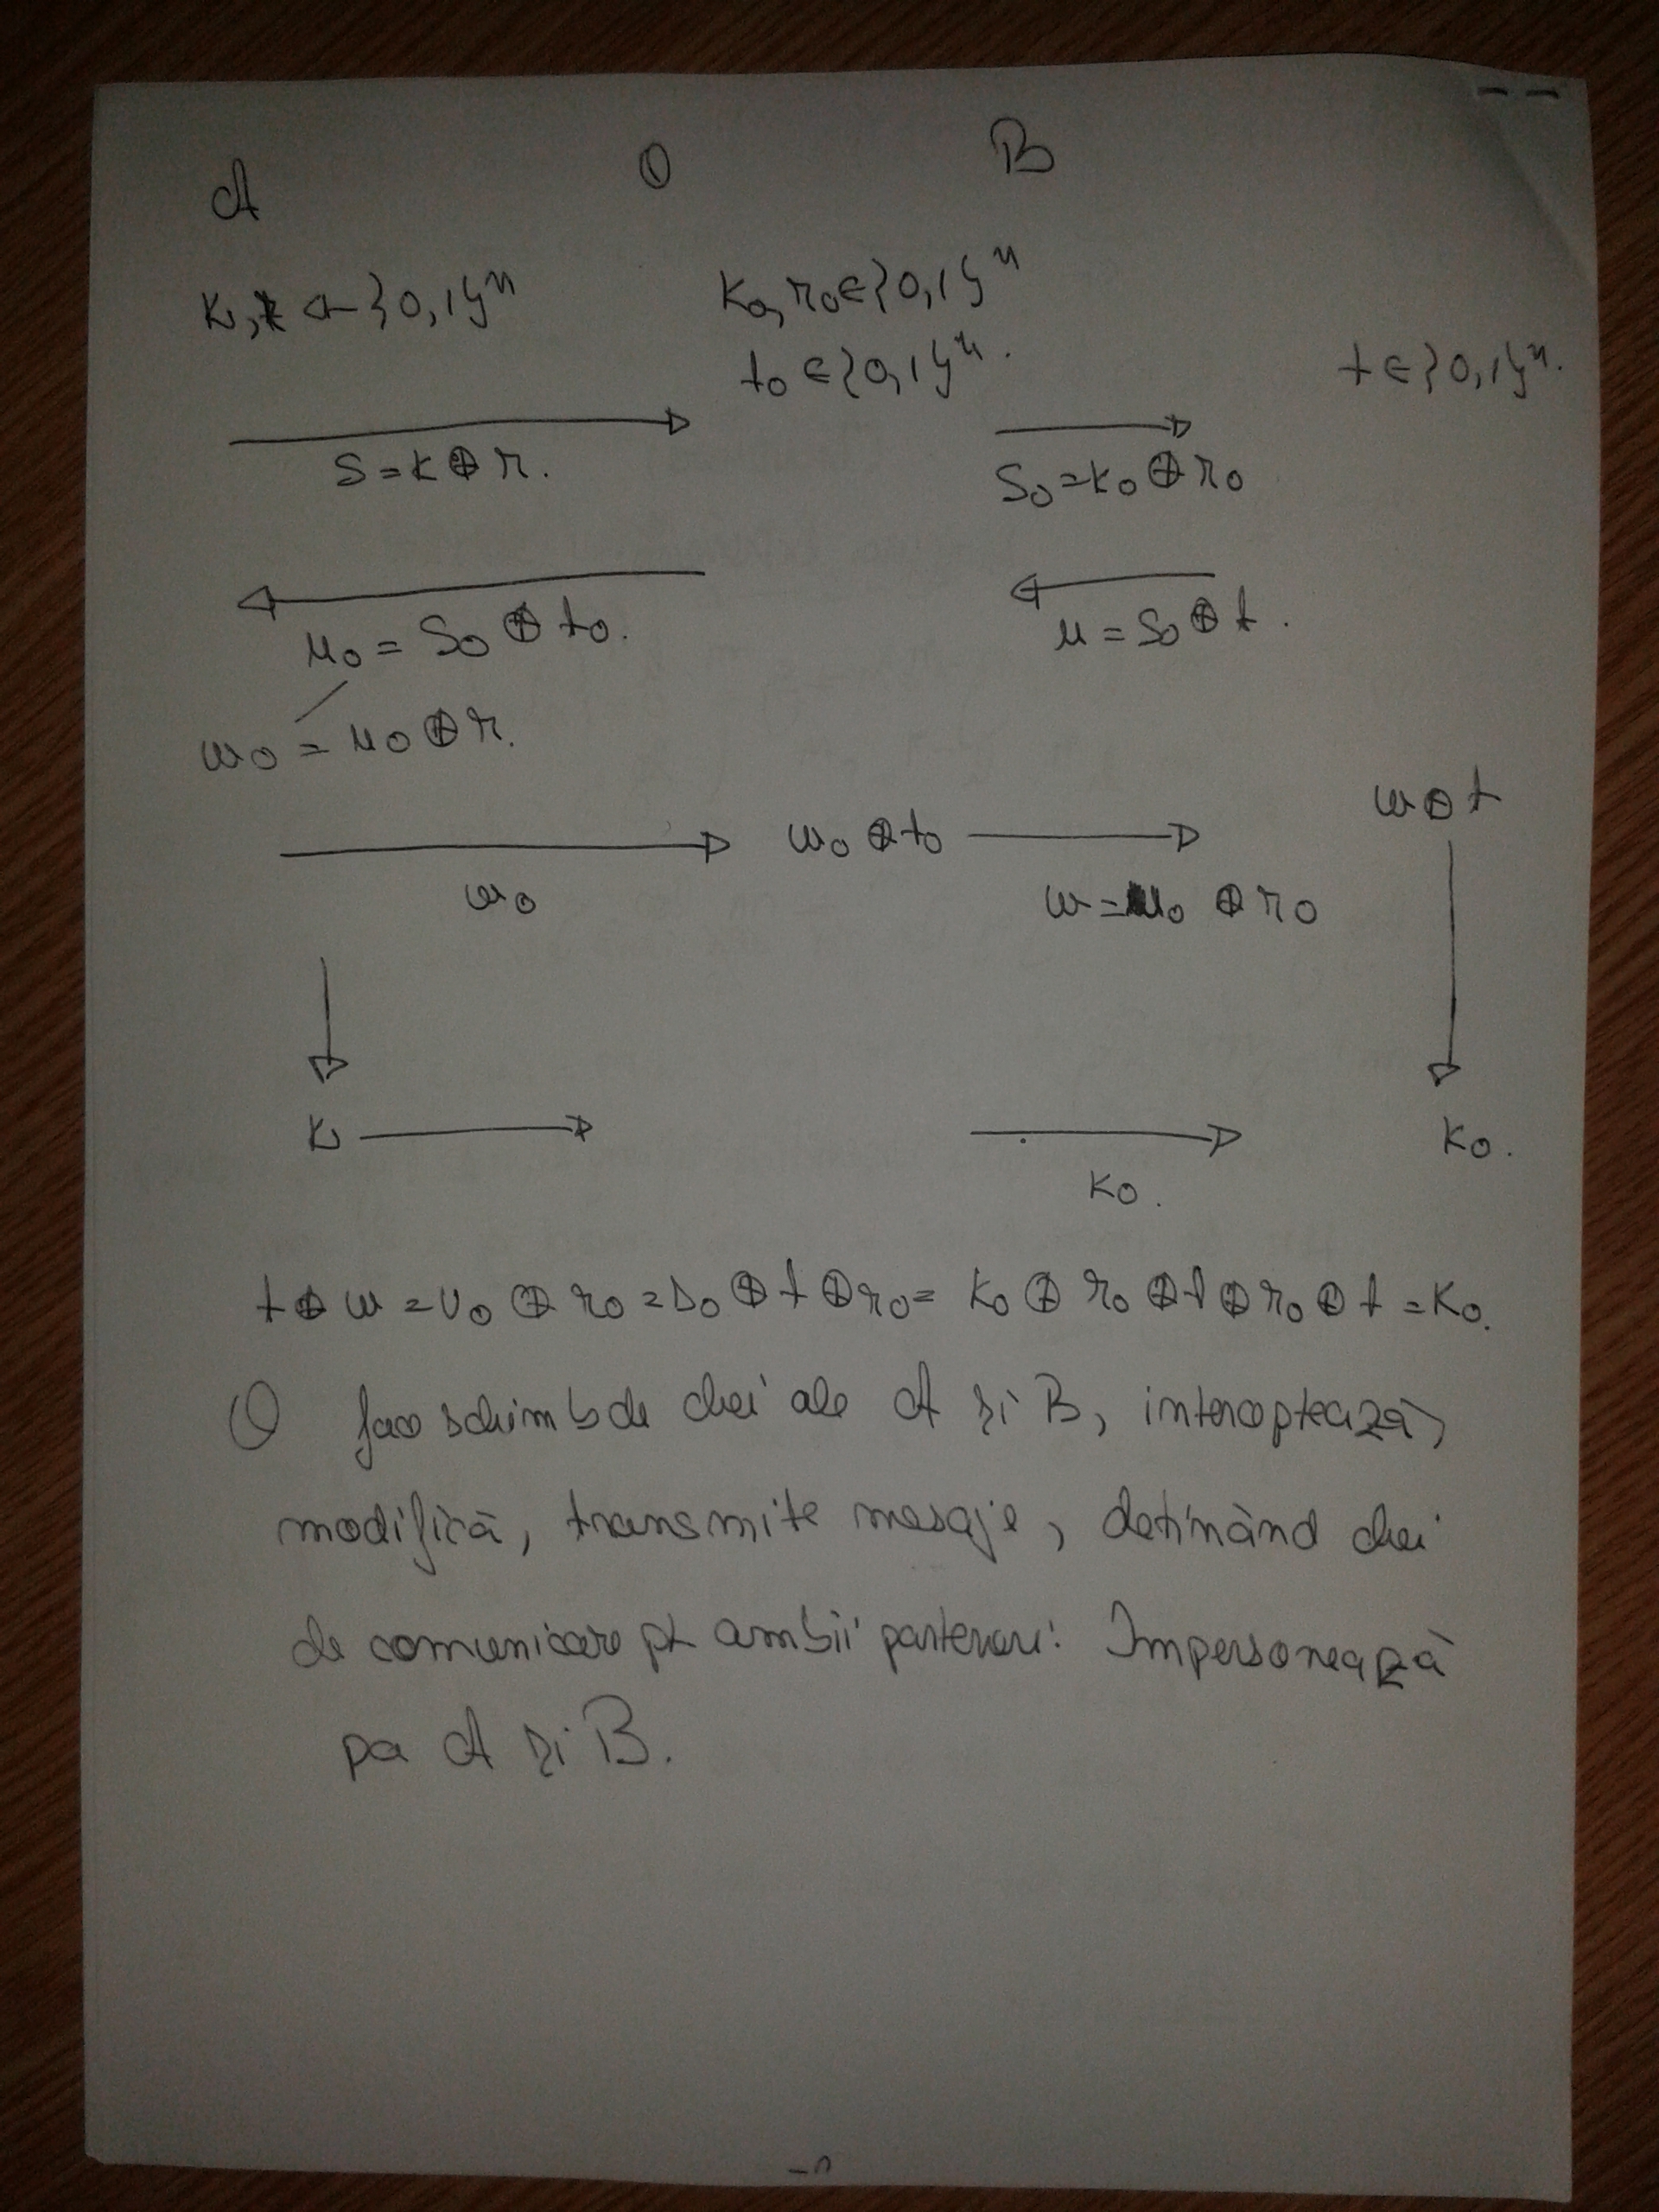 A O B
k, r ← {0,1}ⁿ k₀, r₀ ∈ {0,1}ⁿ
t₀ ∈ {0,1}ⁿ. t ∈ {0,1}ⁿ.
s = k ⊕ r. s₀ = k₀ ⊕ r₀
u₀ = s₀ ⊕ t₀. u = s₀ ⊕ t.
w₀ = u₀ ⊕ r.
w ⊕ t
w₀ ⊕ t₀
w₀ w = u₀ ⊕ r₀
k k₀.
k₀.
t ⊕ w = u₀ ⊕ r₀ = s₀ ⊕ t ⊕ r₀ = k₀ ⊕ r₀ ⊕ t ⊕ r₀ ⊕ t = k₀.
O face schimb de chei ale A și B, interceptează,
modifică, transmite mesaje, detinând chei
de comunicare pt ambii parteneri. Impersonează
pe A și B.